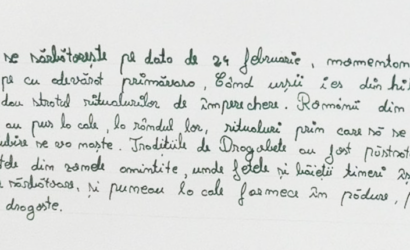 se sărbătorește pe data de 24 februarie, momentan
pe cu adevărat primăvara, Când urșii ies din hi
dau startul ritualurilor de împerechere. Românii din
au pus la cale, la rândul lor, ritualuri prin care să se
iubire se va naște. Traditiile de Dragobete au fost păstrat
tele din zonele amintite, unde fetele și băieții tineri îs
sărbătoare, și puneau la cale farmece în pădure,
dragoste.